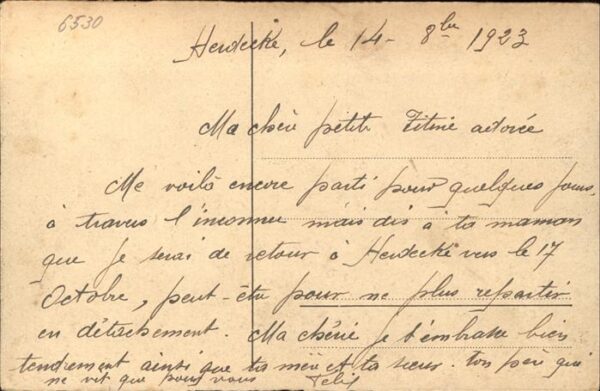 6530
Herdecke, le 14 - 8bre 1923
Ma chérie petite Titine adorée
Me voilà encore parti pour quelques jours,
à travers l'inconnu mais dis à ta maman
que je serai de retour à Herdecke vers le 17
Octobre, peut-être pour ne plus repartir
en détachement. Ma chérie je t'embrasse bien
tendrement ainsi que ta mère et ta soeur. ton père qui
ne vit que pour vous